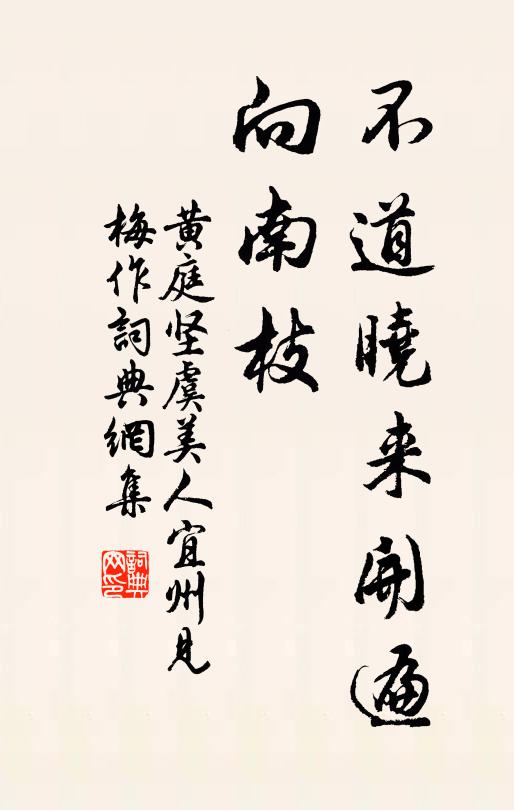 不道曉来開遍
向南枝
黄庭坚虞美人宜州見
梅作詞典網集
詞典
网印